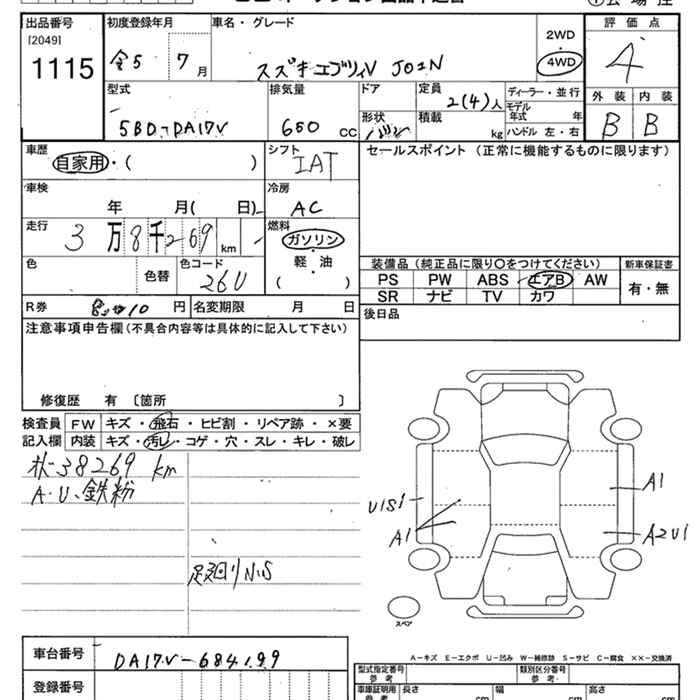 出品番号 初度登録年月 車名・グレード 2WD 評価点
[2049] ・
1115 令5 7月 スズキエブリイV JOIN 4WD 4
型式 排気量 ドア 定員 2(4)人 ディーラー・並行 外装 内装
モデル年式 年
5BD-DA17V 660 CC 形状 バン 積載 kg ハンドル 左・右 B B
車歴 シフト セールスポイント (正常に機能するものに限ります)
自家用・( ) IAT
車検 冷房
年 月( 日) AC
走行 燃料
3万8千269 km ガソリン
軽・油
色 色替 色コード 26U ( )
装備品 (純正品に限り〇をつけてください) 新車保証書
PS PW ABS エアB AW 有・無
SR ナビ TV カワ
R券 円 名変期限 月 日 後日品
注意事項申告欄 (不具合内容等は具体的に記入して下さい)
修復歴 有 〔箇所 〕
検査員 FW キズ・飛石・ヒビ割・リペア跡・×要
記入欄 内装 キズ・汚レ・コゲ・穴・スレ・キレ・破レ
38269 km
A・U、鉄粉
足廻りサビ
U1S1
A1
A1
A2U1
スペア
車台番号 DA17V-684199
A-キズ E-エクボ U-凹み W-補修跡 S-サビ C-腐食 ××-交換済
登録番号
型式指定番号 参考 類別区分番号 参考
車庫証明用 参考 長さ cm 幅 cm 高さ cm